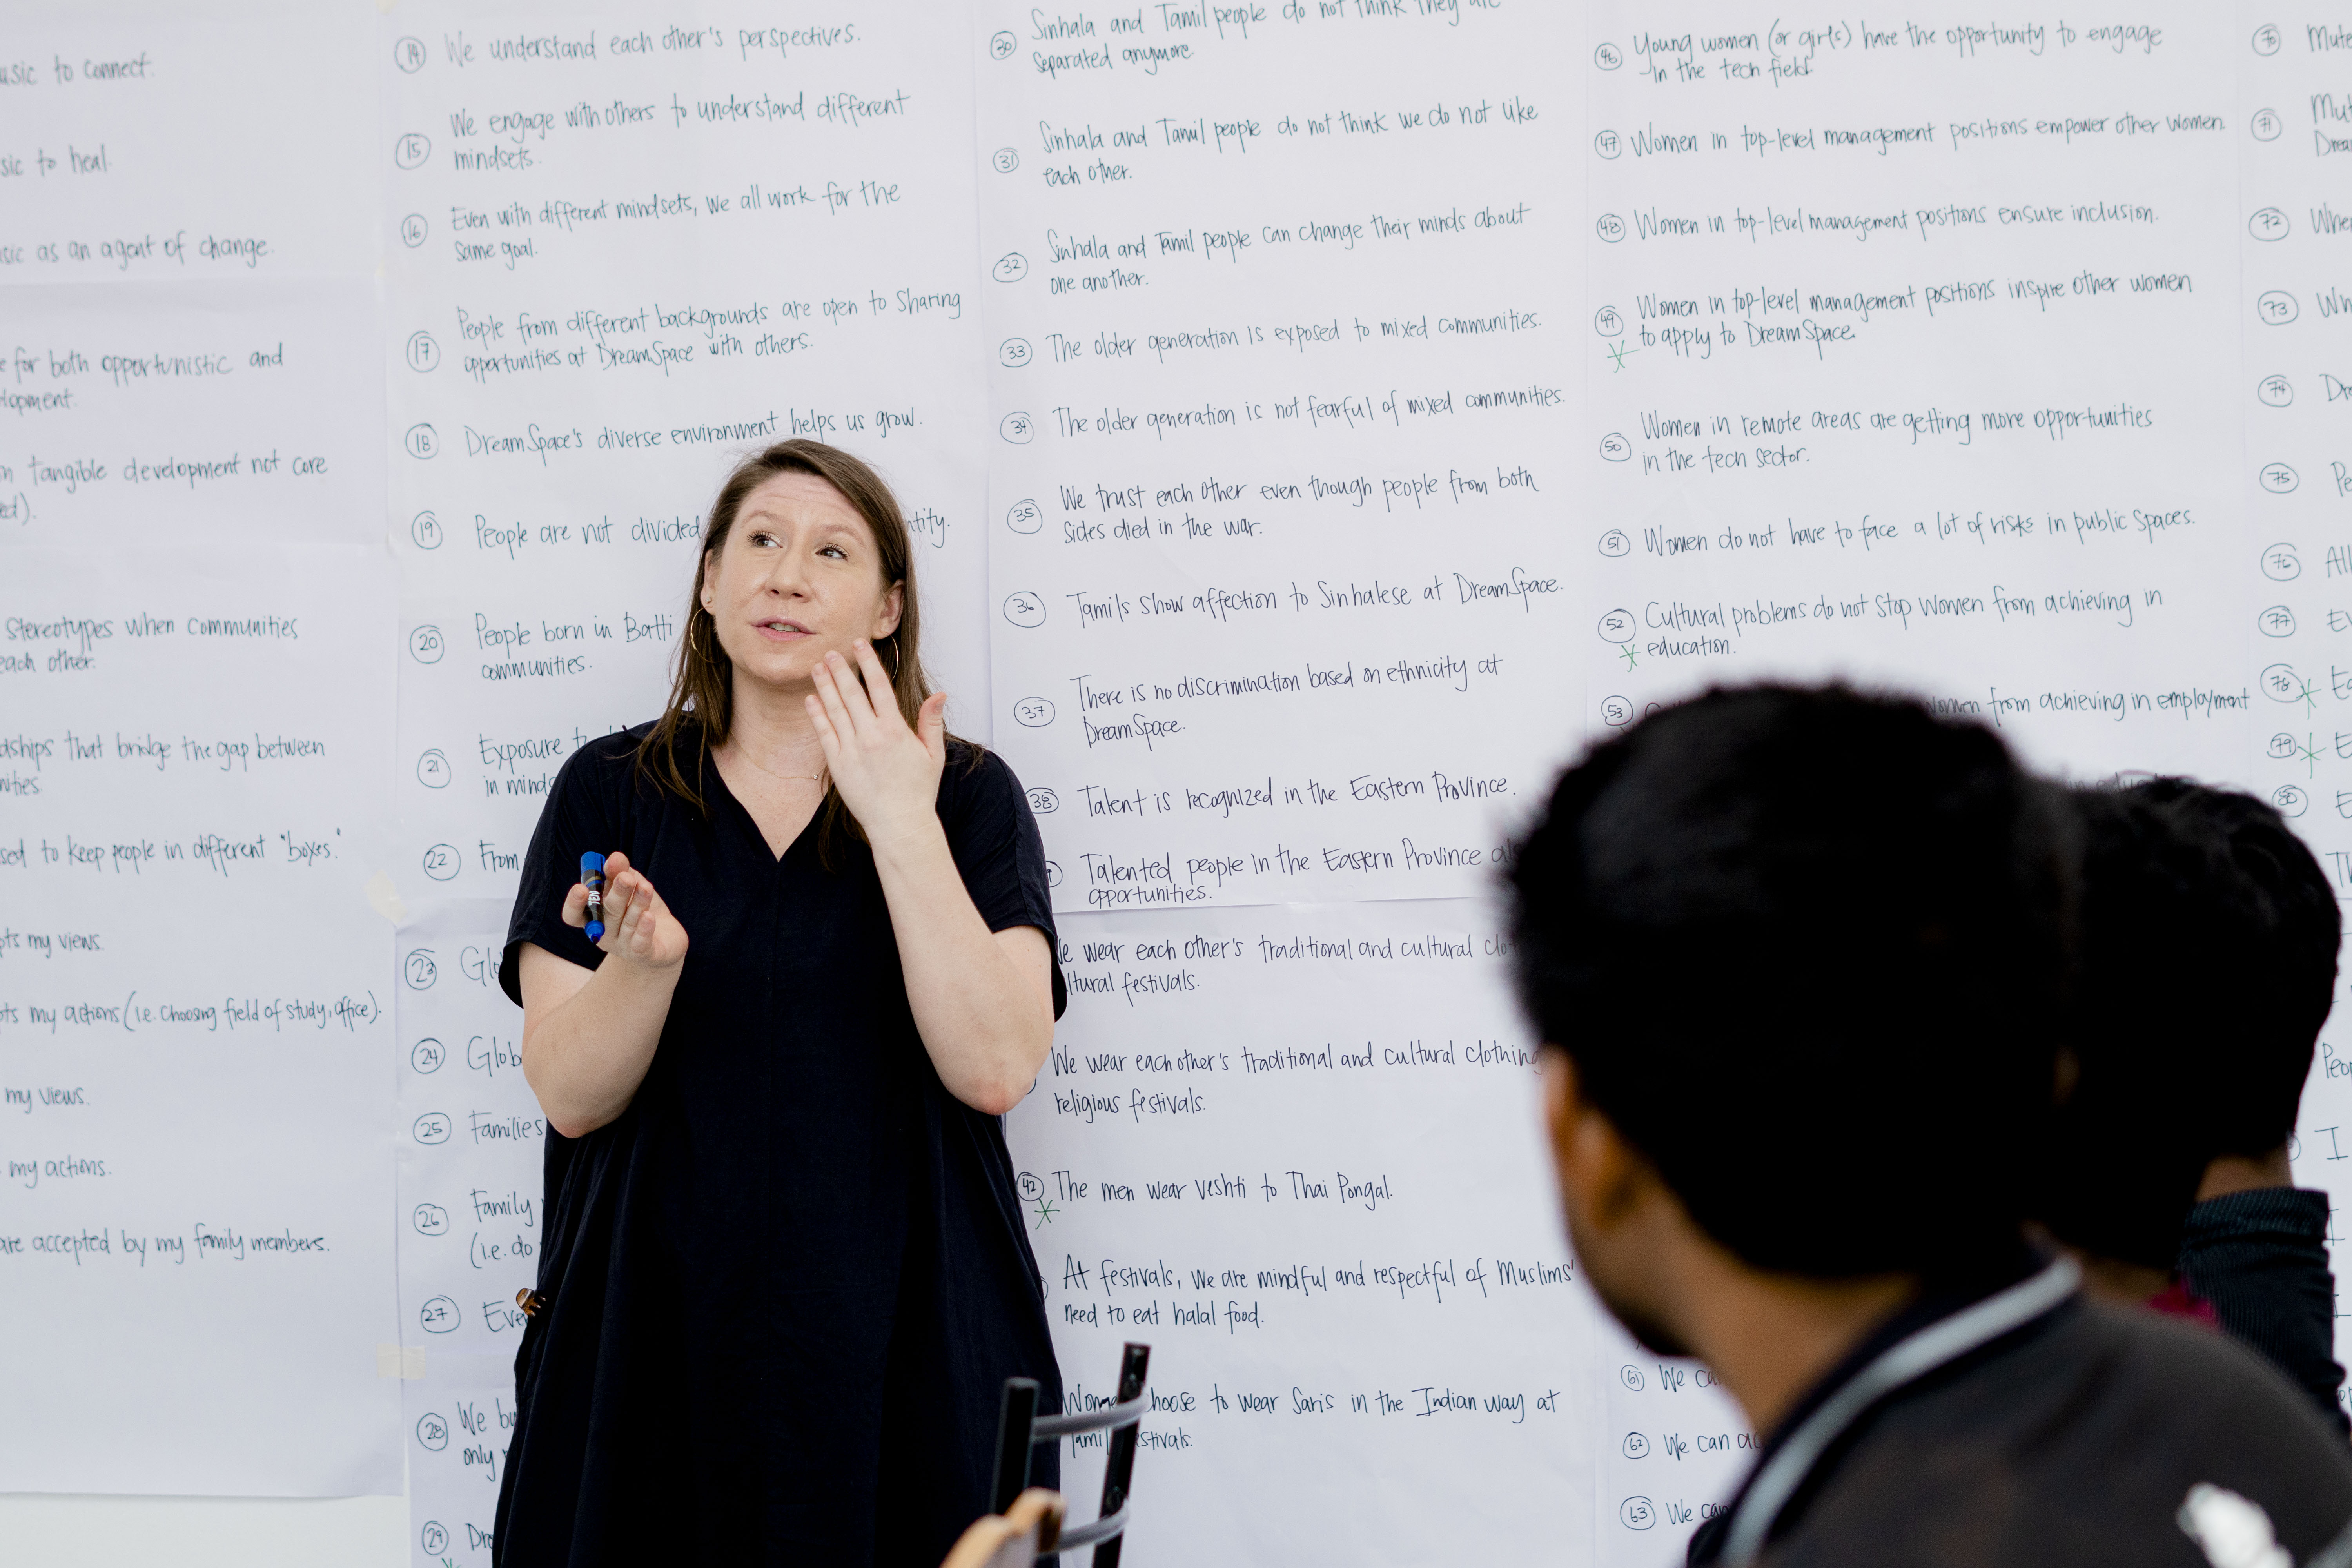 usic to connect.
sic to heal.
sic as an agent of change.
e for both opportunistic and
lopment.
n tangible development not core
ed).
stereotypes when communities
each other.
dships that bridge the gap between
nities
sed to keep people in different "boxes."
pts my views.
pts my actions (i.e. choosing field of study, office).
my views.
my actions.
are accepted by my family members.
14 We understand each other's perspectives.
15 We engage with others to understand different
mindsets.
16 Even with different mindsets, we all work for the
same goal.
17 People from different backgrounds are open to sharing
opportunities at DreamSpace with others.
18 DreamSpace's diverse environment helps us grow.
19 People are not divided ntity.
20 People born in Batti
communities.
21 Exposure t
in minds
22 From
23 Glo
24 Glob
25 Families
26 Family
(i.e. do
27 Eve
28 We bu
only
29 Dre
30 Sinhala and Tamil people do not think they are
separated anymore.
31 Sinhala and Tamil people do not think we do not like
each other.
32 Sinhala and Tamil people can change their minds about
one another.
33 The older generation is exposed to mixed communities.
34 The older generation is not fearful of mixed communities.
35 We trust each other even though people from both
sides died in the war.
36 Tamils show affection to Sinhalese at DreamSpace.
37 There is no discrimination based on ethnicity at
DreamSpace.
38 Talent is recognized in the Eastern Province.
Talented people in the Eastern Province
opportunities.
We wear each other's traditional and cultural clo
ltural festivals.
We wear each other's traditional and cultural clothing
religious festivals.
42 The men wear veshti to Thai Pongal.
At festivals, we are mindful and respectful of Muslims'
need to eat halal food.
Women choose to wear saris in the Indian way at
Tamil festivals.
46 Young women (or girls) have the opportunity to engage
in the tech field.
47 Women in top-level management positions empower other women.
48 Women in top-level management positions ensure inclusion.
49 Women in top-level management positions inspire other women
to apply to DreamSpace.
50 Women in remote areas are getting more opportunities
in the tech sector.
51 Women do not have to face a lot of risks in public spaces.
52 Cultural problems do not stop women from achieving in
education.
53 women from achieving in employment
61 We ca
62 We can ac
63 We can
70 Mute
71 Mut
Drea
72 Whe
73 Wh
74 Dr
75 Pe
76 All
77 Ev
78 Ea
79 E
80 E
Th
Peo
I